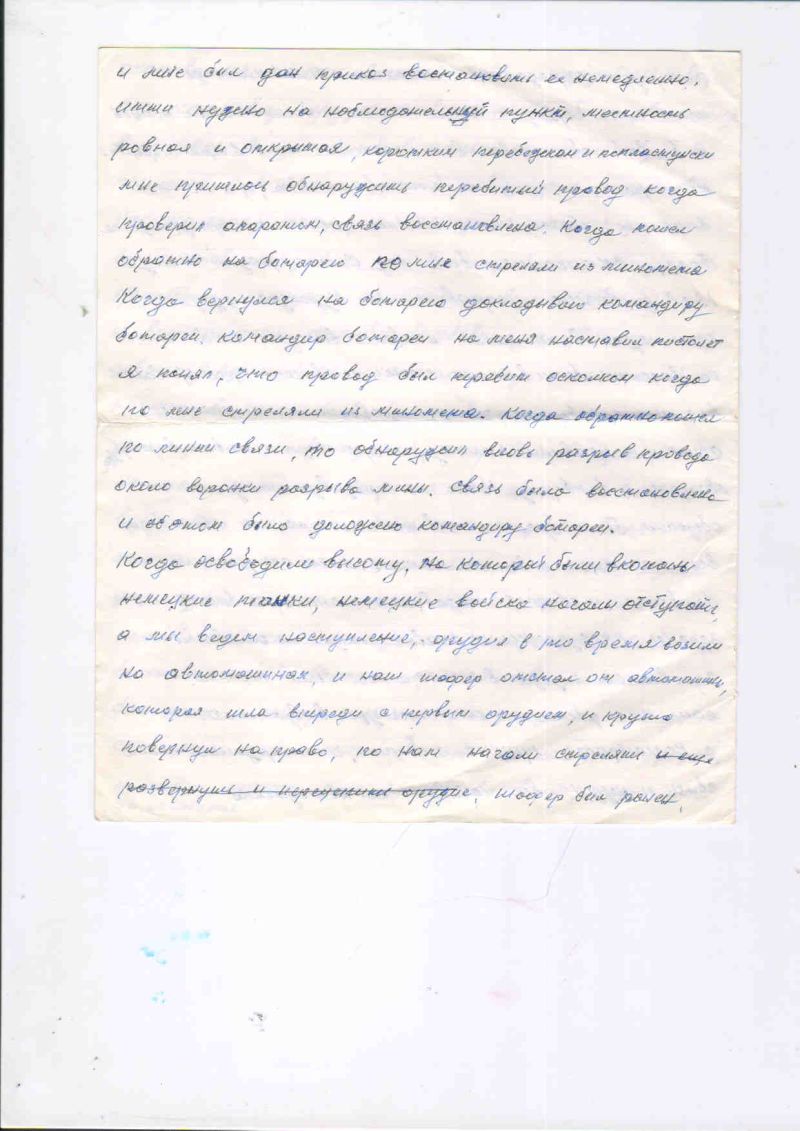 и мне был дан приказ востановить ее немедленно.
итти нужно на наблюдательный пункт, местность
ровная и открытая, коротким перебежком и попластунски
мне пришлось обнаружить перебитый провод когда
проверил апаратом, связь восстановлена. Когда пошел
обратно на батарею по мне стреляли из миномета
Когда вернулся на батарею докладываю командиру
батареи. командир батареи на меня наставил пистолет
я понял, что провод был перебит осколком когда
по мне стреляли из миномета. Когда обратно пошел
по линии связи, то обнаружил вновь разрыв провода
около воронки разрыва мины. связь была восстановлена
и об этом было доложено командиру батареи.
Когда освободили высоту, на которой были вкопаны
немецкие танки, немецкие войска начали отступать,
а мы ведем наступление, орудия в то время возили
на автомашинах, и наш шофер отстал от автомашины,
которая шла впереди с первым орудием, и круто
повернул на право, по нам начали стреляти и еще
развернули и орудие, шофер был ранен,